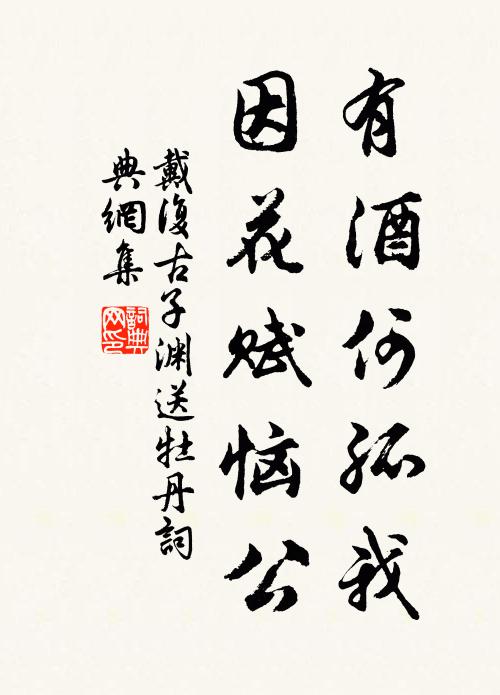 有酒何孤我
因花赋恼公
戴復古子渊送牡丹詞
典網集
詞典
网印